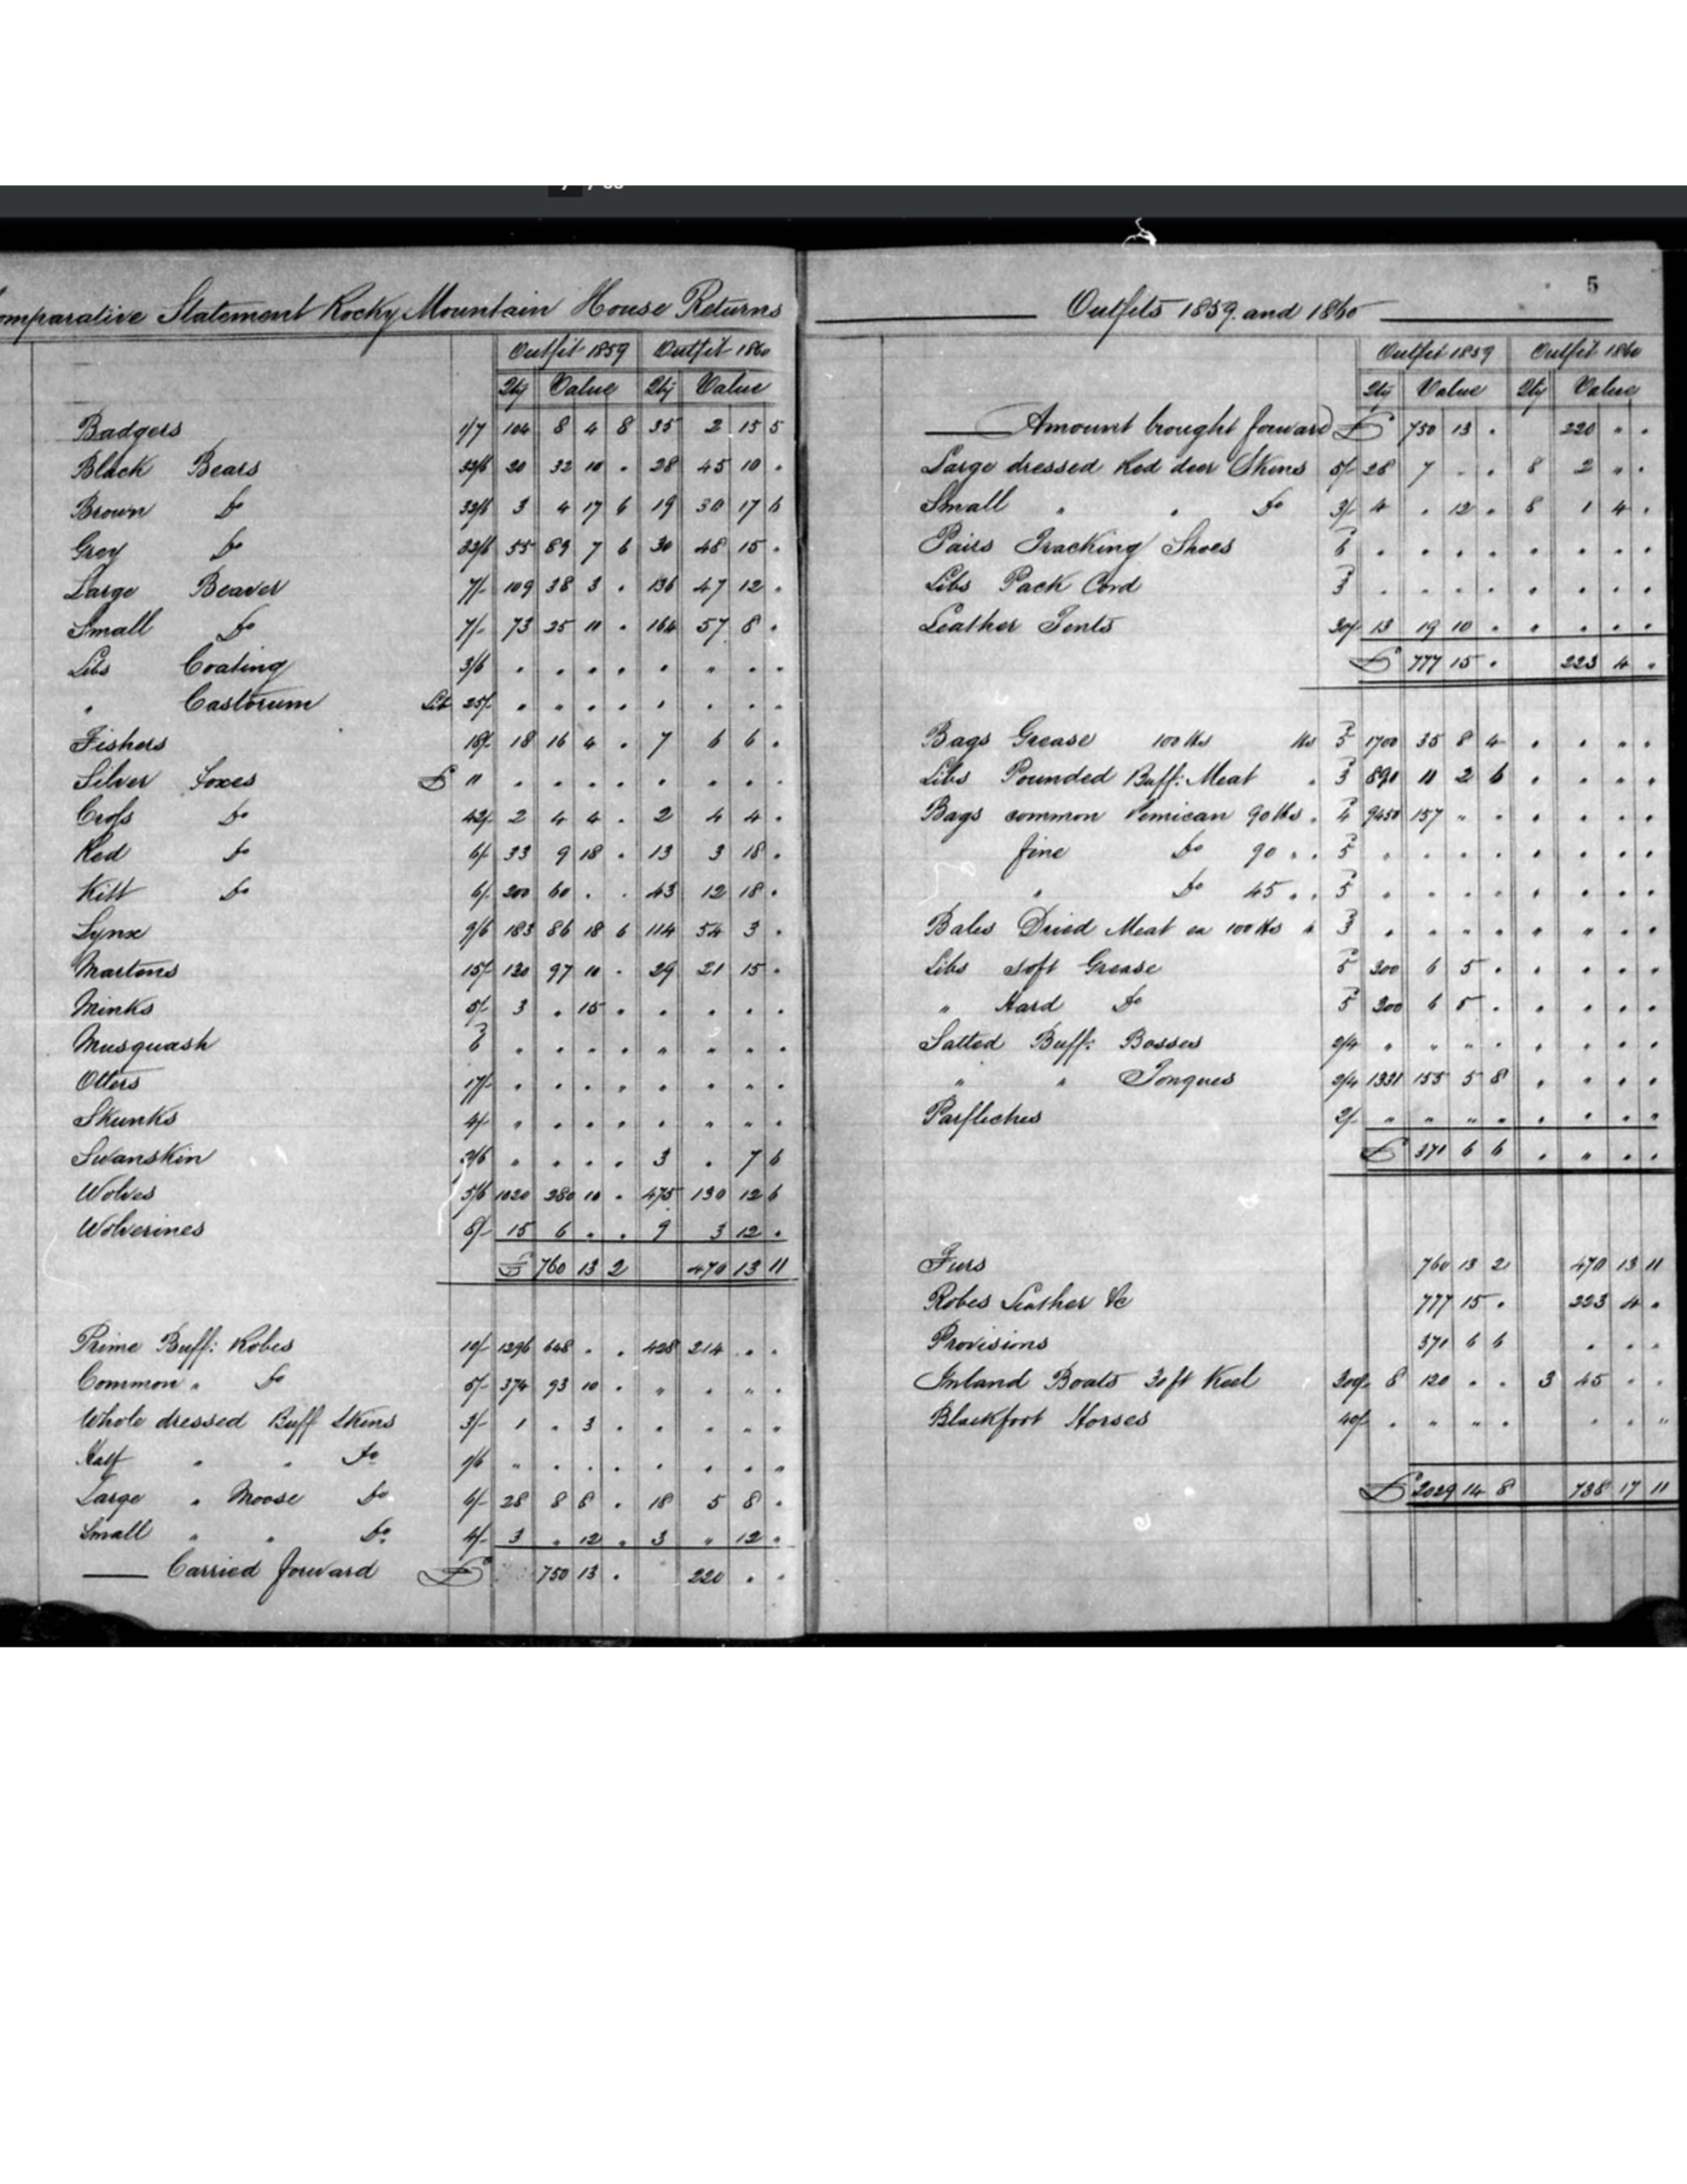 omparative Statement Rocky Mountain House Returns
Outfit 1859 Outfit 1860
Qty Value Qty Value
Badgers 1/7 104 8 4 8 35 2 15 5
Black Bears 32/6 20 32 10 . 28 45 10 .
Brown Do 32/6 3 4 17 6 19 30 17 6
Grey Do 32/6 55 89 7 6 30 48 15 .
Large Beaver 7/- 109 38 3 . 136 47 12 .
Small Do 7/- 73 25 11 . 164 57 8 .
Libs Coating 3/6 . . . . . " . .
" Castorum Lib 25/- . . . . . . . .
Fishers 18/- 18 16 4 . 7 6 6 .
Silver Foxes £ 11 . . . . . . . .
Cross Do 42/- 2 4 4 . 2 4 4 .
Red Do 6/- 33 9 18 . 13 3 18 .
Kitt Do 6/- 200 60 . . 43 12 18 .
Lynx 9/6 183 86 18 6 114 54 3 .
Martens 15/- 130 97 10 . 29 21 15 .
Minks 5/- 3 . 15 . . . . .
Musquash 6 . . . . . . . .
Otters 17/- . . . . . . . .
Skunks 4/- . . . . . . . .
Swanskin 2/6 . . . . 3 . 7 6
Wolves 5/6 1020 280 10 . 475 130 12 6
Wolverines 8/- 15 6 . . 9 3 12 .
£ 760 13 2 470 13 11
Prime Buff: Robes 10/- 1296 648 . . 428 214 . .
Common " Do 5/- 374 93 10 . " . . .
Whole dressed Buff Skins 3/- 1 . 3 . . . . .
Half " " Do 1/6 " . . . . . . "
Large " Moose Do 6/- 28 8 8 . 18 5 8 .
Small " " Do 4/- 3 . 12 . 3 " 12 .
Carried forward £ 750 13 . 220 . .
5
Outfits 1859 and 1860
Outfit 1859 Outfit 1860
Qty Value Qty Value
Amount brought forward £ 750 13 . 220 " .
Large dressed Red deer Skins 5/- 28 7 . . 8 2 " .
Small " " Do 3/- 4 . 12 . 8 1 4 .
Pairs Tracking Shoes 6 . . . . . . . .
Libs Pack Cord 3 . . . . . . . .
Leather Tents 30/- 13 19 10 . . . . .
£ 777 15 . 223 4 .
Bags Grease 100 lbs lbs 5 1700 35 8 4 . . . .
Libs Pounded Buff: Meat " 3 890 11 2 6 . . . .
Bags common Pemican 90 lbs " 4 9450 157 10 . . . . .
fine Do 90 " " 5 . . . . . . . .
" Do 45 " " 5 . . . . . . . .
Bales Dried Meat ea 100 lbs " 3 . . . . . . . .
Libs soft Grease 5 300 6 5 . . . . .
" Hard Do 5 300 6 5 . . . . .
Salted Buff: Bosses 2/4 . . . . . . . .
" " Tongues 2/4 1331 155 5 8 . . . .
Parfleches 2/- " " " . . . . "
£ 371 6 6 . " . .
Furs 760 13 2 470 13 11
Robes Leather &c 777 15 . 223 4 .
Provisions 371 6 6 . . .
Inland Boats 30 ft Keel 300/- 8 120 . . 3 45 . .
Blackfoot Horses 40/- . " " . . . "
£ 2029 14 8 738 17 11